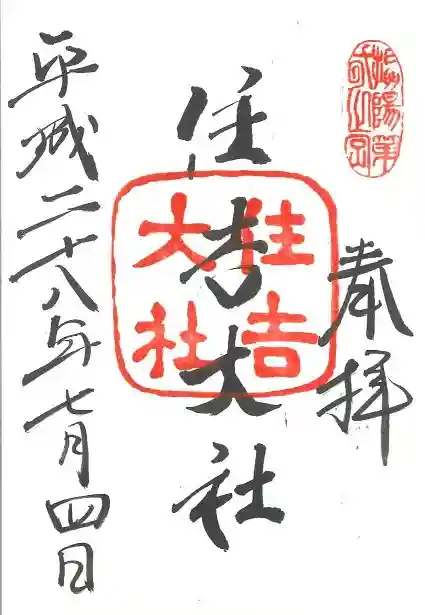 奉拝
住吉大社
住吉
大社
平成二十八年七月四日